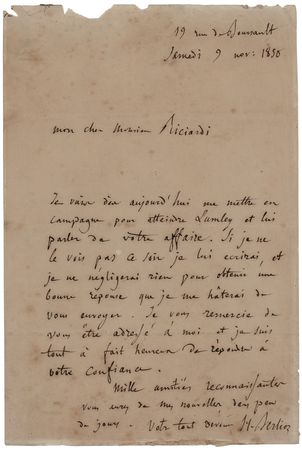 19 rue de Boursault
Samedi 9 nov: 1850
mon cher Monsieur Ricciardi
Je vais dès aujourd'hui me mettre en
campagne pour atteindre Lumley et lui
parler de votre affaire. Si je ne
le vois pas ce soir je lui écrirai et
je ne négligerai rien pour obtenir une
bonne réponse que je me hâterai de
vous envoyer. Je vous remercie de
vous être adressé à moi et je suis
tout à fait heureux de répondre à
votre confiance.
Mille amitiés reconnaissantes
vous aurez de mes nouvelles dans peu
de jours. Votre tout dévoué H. Berlioz